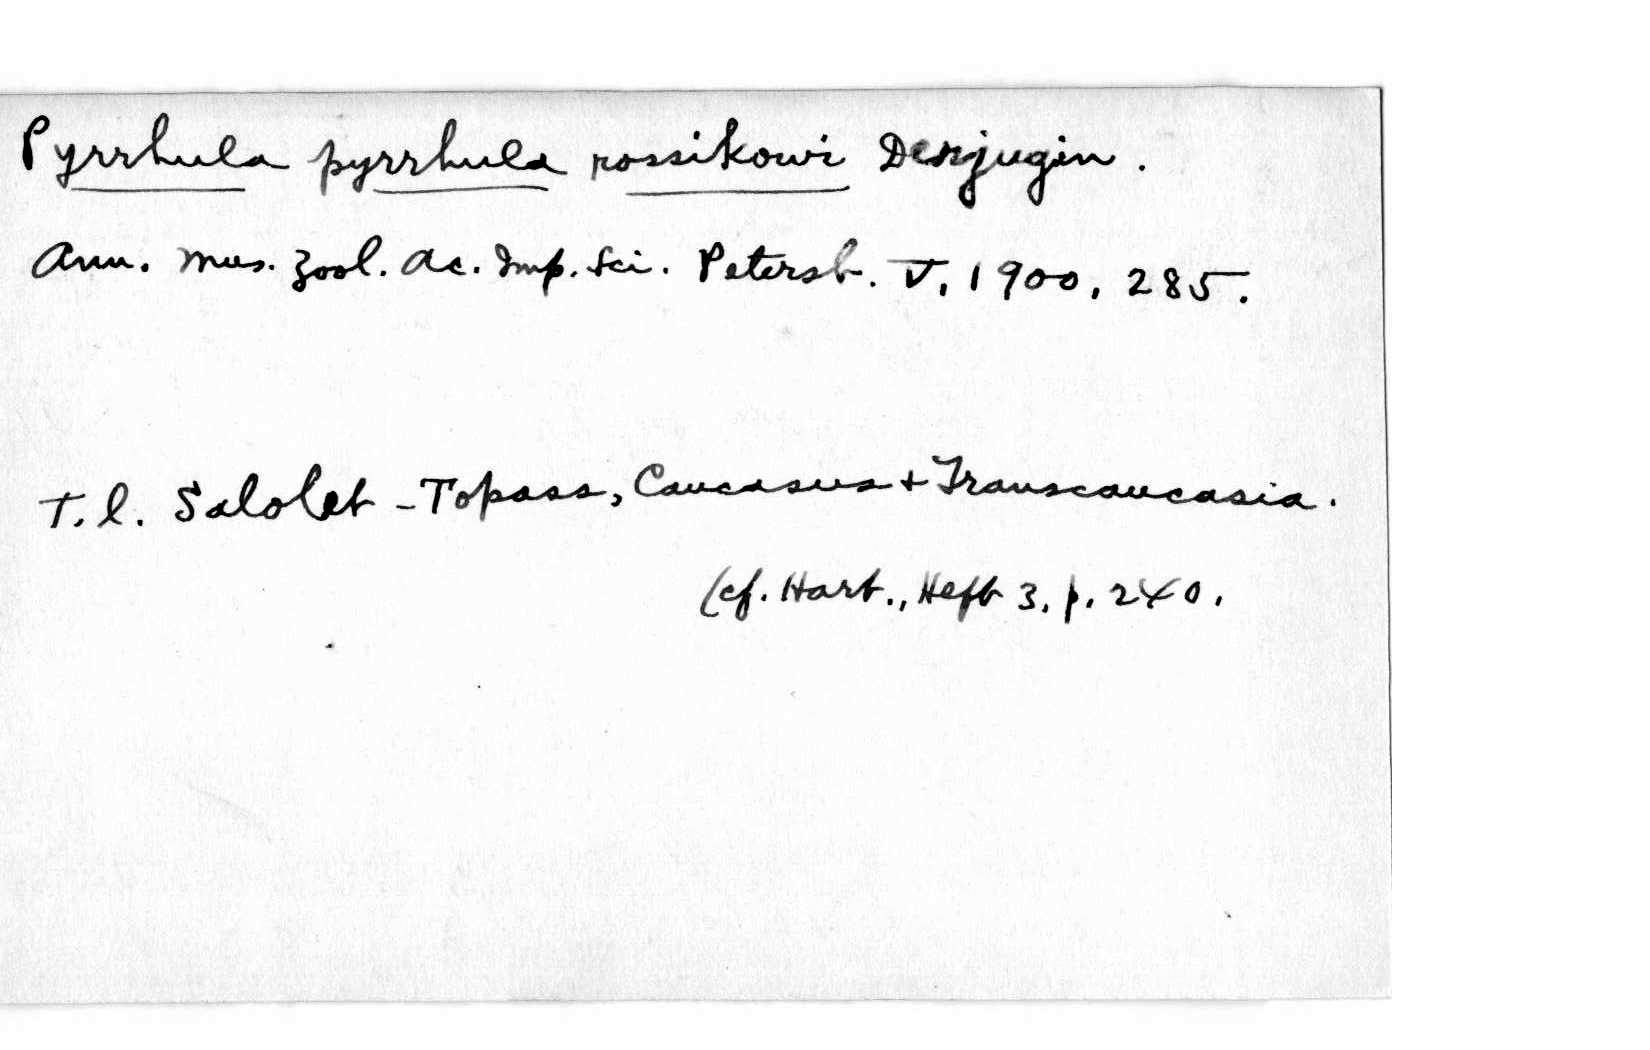 Pyrrhula pyrrhula rossikowi Derjugin.
Ann. Mus. Zool. Ac. Imp. Sci. Petersb. V, 1900, 285.
T. l. Salolet - Topass, Caucasus + Transcaucasia.
(cf. Hart., Heft 3, p. 240.